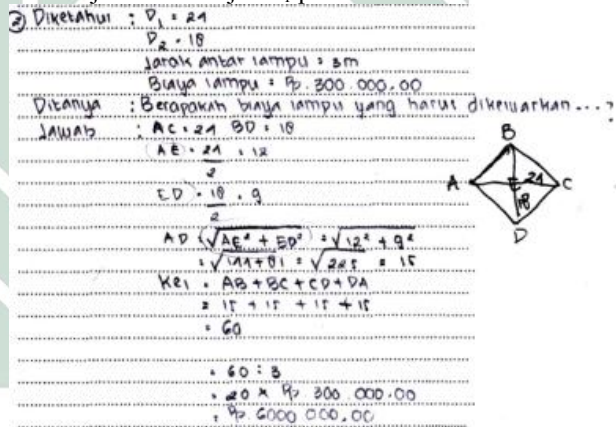 ② Diketahui : D₁ = 24
D₂ = 18
Jarak antar lampu = 3m
Biaya lampu = Rp. 300.000,00
Ditanya : Berapakah biaya lampu yang harus dikeluarkan....?
Jawab : AC = 24 BD = 18
AE = 24/2 = 12
ED = 18/2 = 9
AD = √AE² + ED² = √12² + 9²
= √144+81 = √225 = 15
Kel = AB + BC + CD + DA
= 15 + 15 + 15 + 15
= 60
= 60 : 3
= 20 x Rp. 300.000.00
= Rp. 6000.000,00
B
A E 24 C
18
D